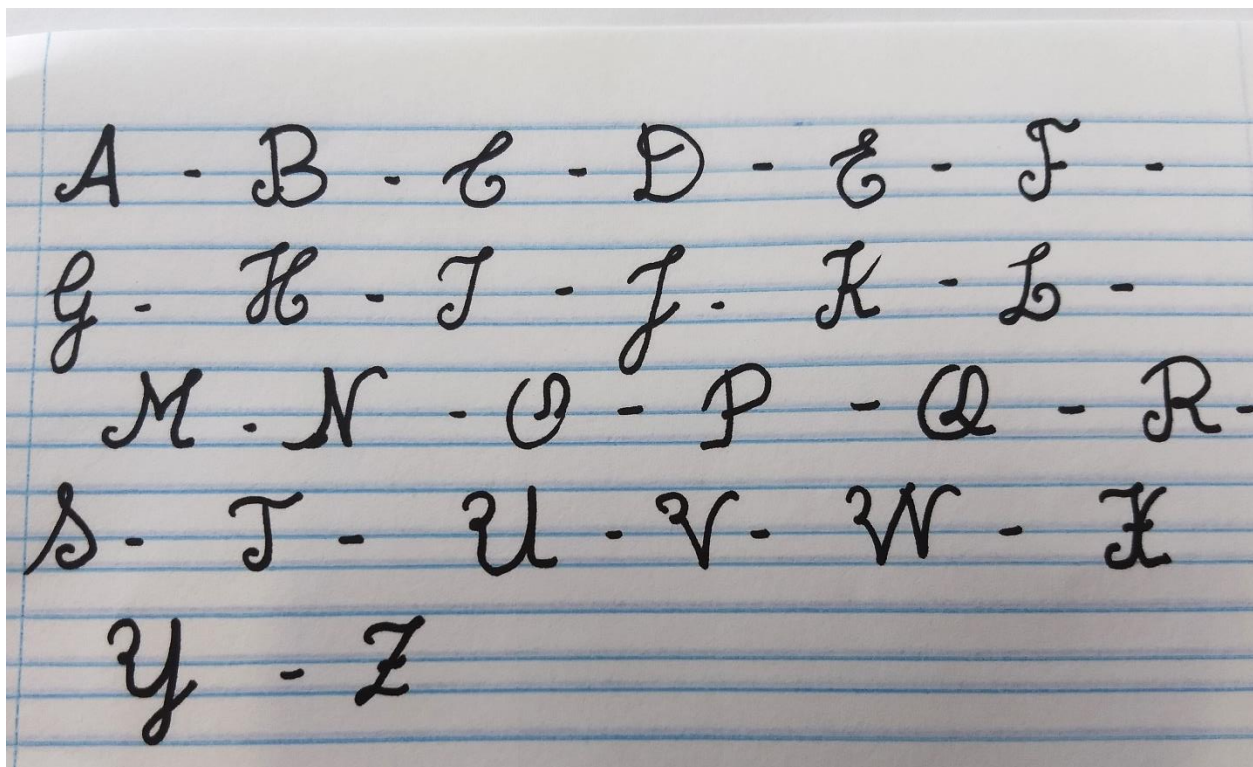 A - B - C - D - E - F -
G - H - I - J - K - L -
M - N - O - P - Q - R -
S - T - U - V - W - X
Y - Z